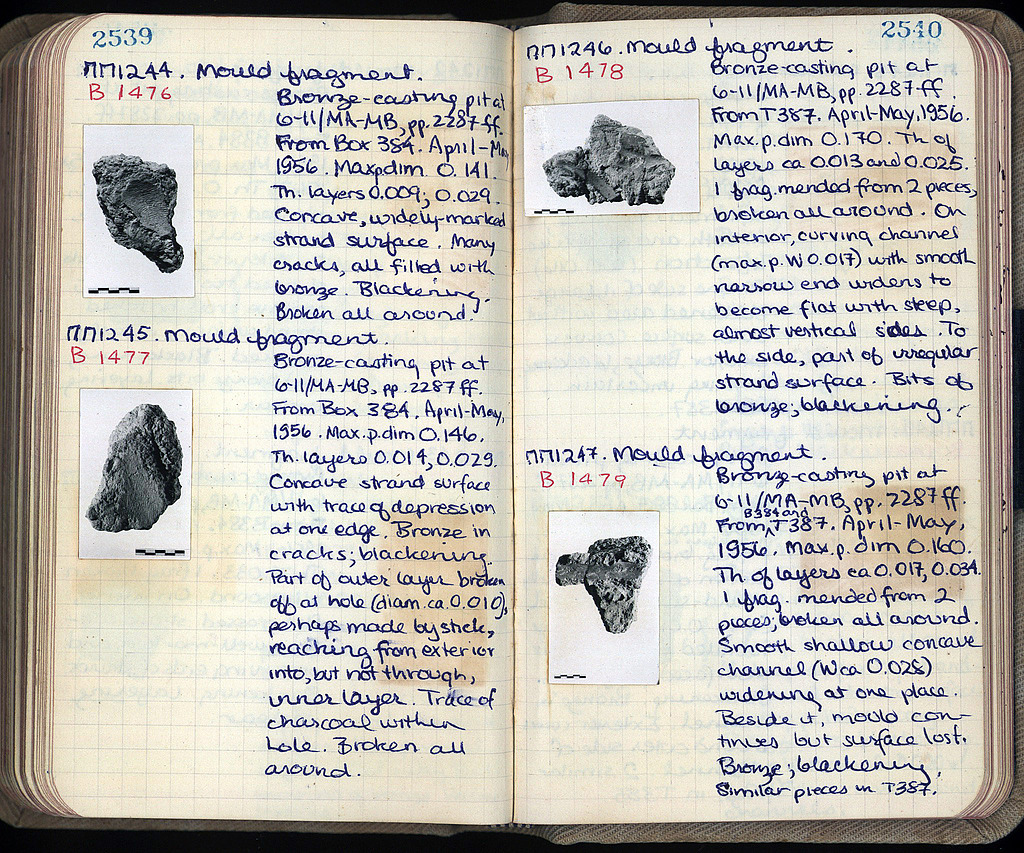 2539
ΠΠ1244. Mould fragment.
B 1476
Bronze-casting pit at
6-11/MA-MB, pp. 2287 ff.
From Box 384. April-May
1956. Max.p.dim 0.141.
Th. layers 0.009; 0.029.
Concave, widely-marked
strand surface. Many
cracks, all filled with
bronze. Blackening.
Broken all around.
ΠΠ1245. Mould fragment.
B 1477
Bronze-casting pit at
6-11/MA-MB, pp. 2287 ff.
From Box 384. April-May,
1956. Max.p.dim 0.146.
Th. layers 0.014, 0.029.
Concave strand surface
with trace of depression
at one edge. Bronze in
cracks; blackening.
Part of outer layer broken
off at hole (diam. ca. 0.010),
perhaps made by stick,
reaching from exterior
into, but not through,
inner layer. Trace of
charcoal within
hole. Broken all
around.
2540
ΠΠ1246. Mould fragment.
B 1478
Bronze-casting pit at
6-11/MA-MB, pp. 2287 ff.
From T387. April-May, 1956.
Max.p.dim 0.170. Th of
layers ca 0.013 and 0.025.
1 frag. mended from 2 pieces,
broken all around. On
interior, curving channel
(max.p.W 0.017) with smooth
narrow end widens to
become flat with steep,
almost vertical sides. To
the side, part of irregular
strand surface. Bits of
bronze; blackening.
ΠΠ1247. Mould fragment.
B 1479
Bronze-casting pit at
6-11/MA-MB, pp. 2287 ff.
B384 and
From ^ T387. April-May,
1956. Max.p.dim 0.160.
Th of layers ca 0.017, 0.034.
1 frag. mended from 2
pieces; broken all around.
Smooth shallow concave
channel (W ca 0.028)
widening at one place.
Beside it, mould con-
tinues but surface lost.
Bronze; blackening.
Similar pieces in T387.